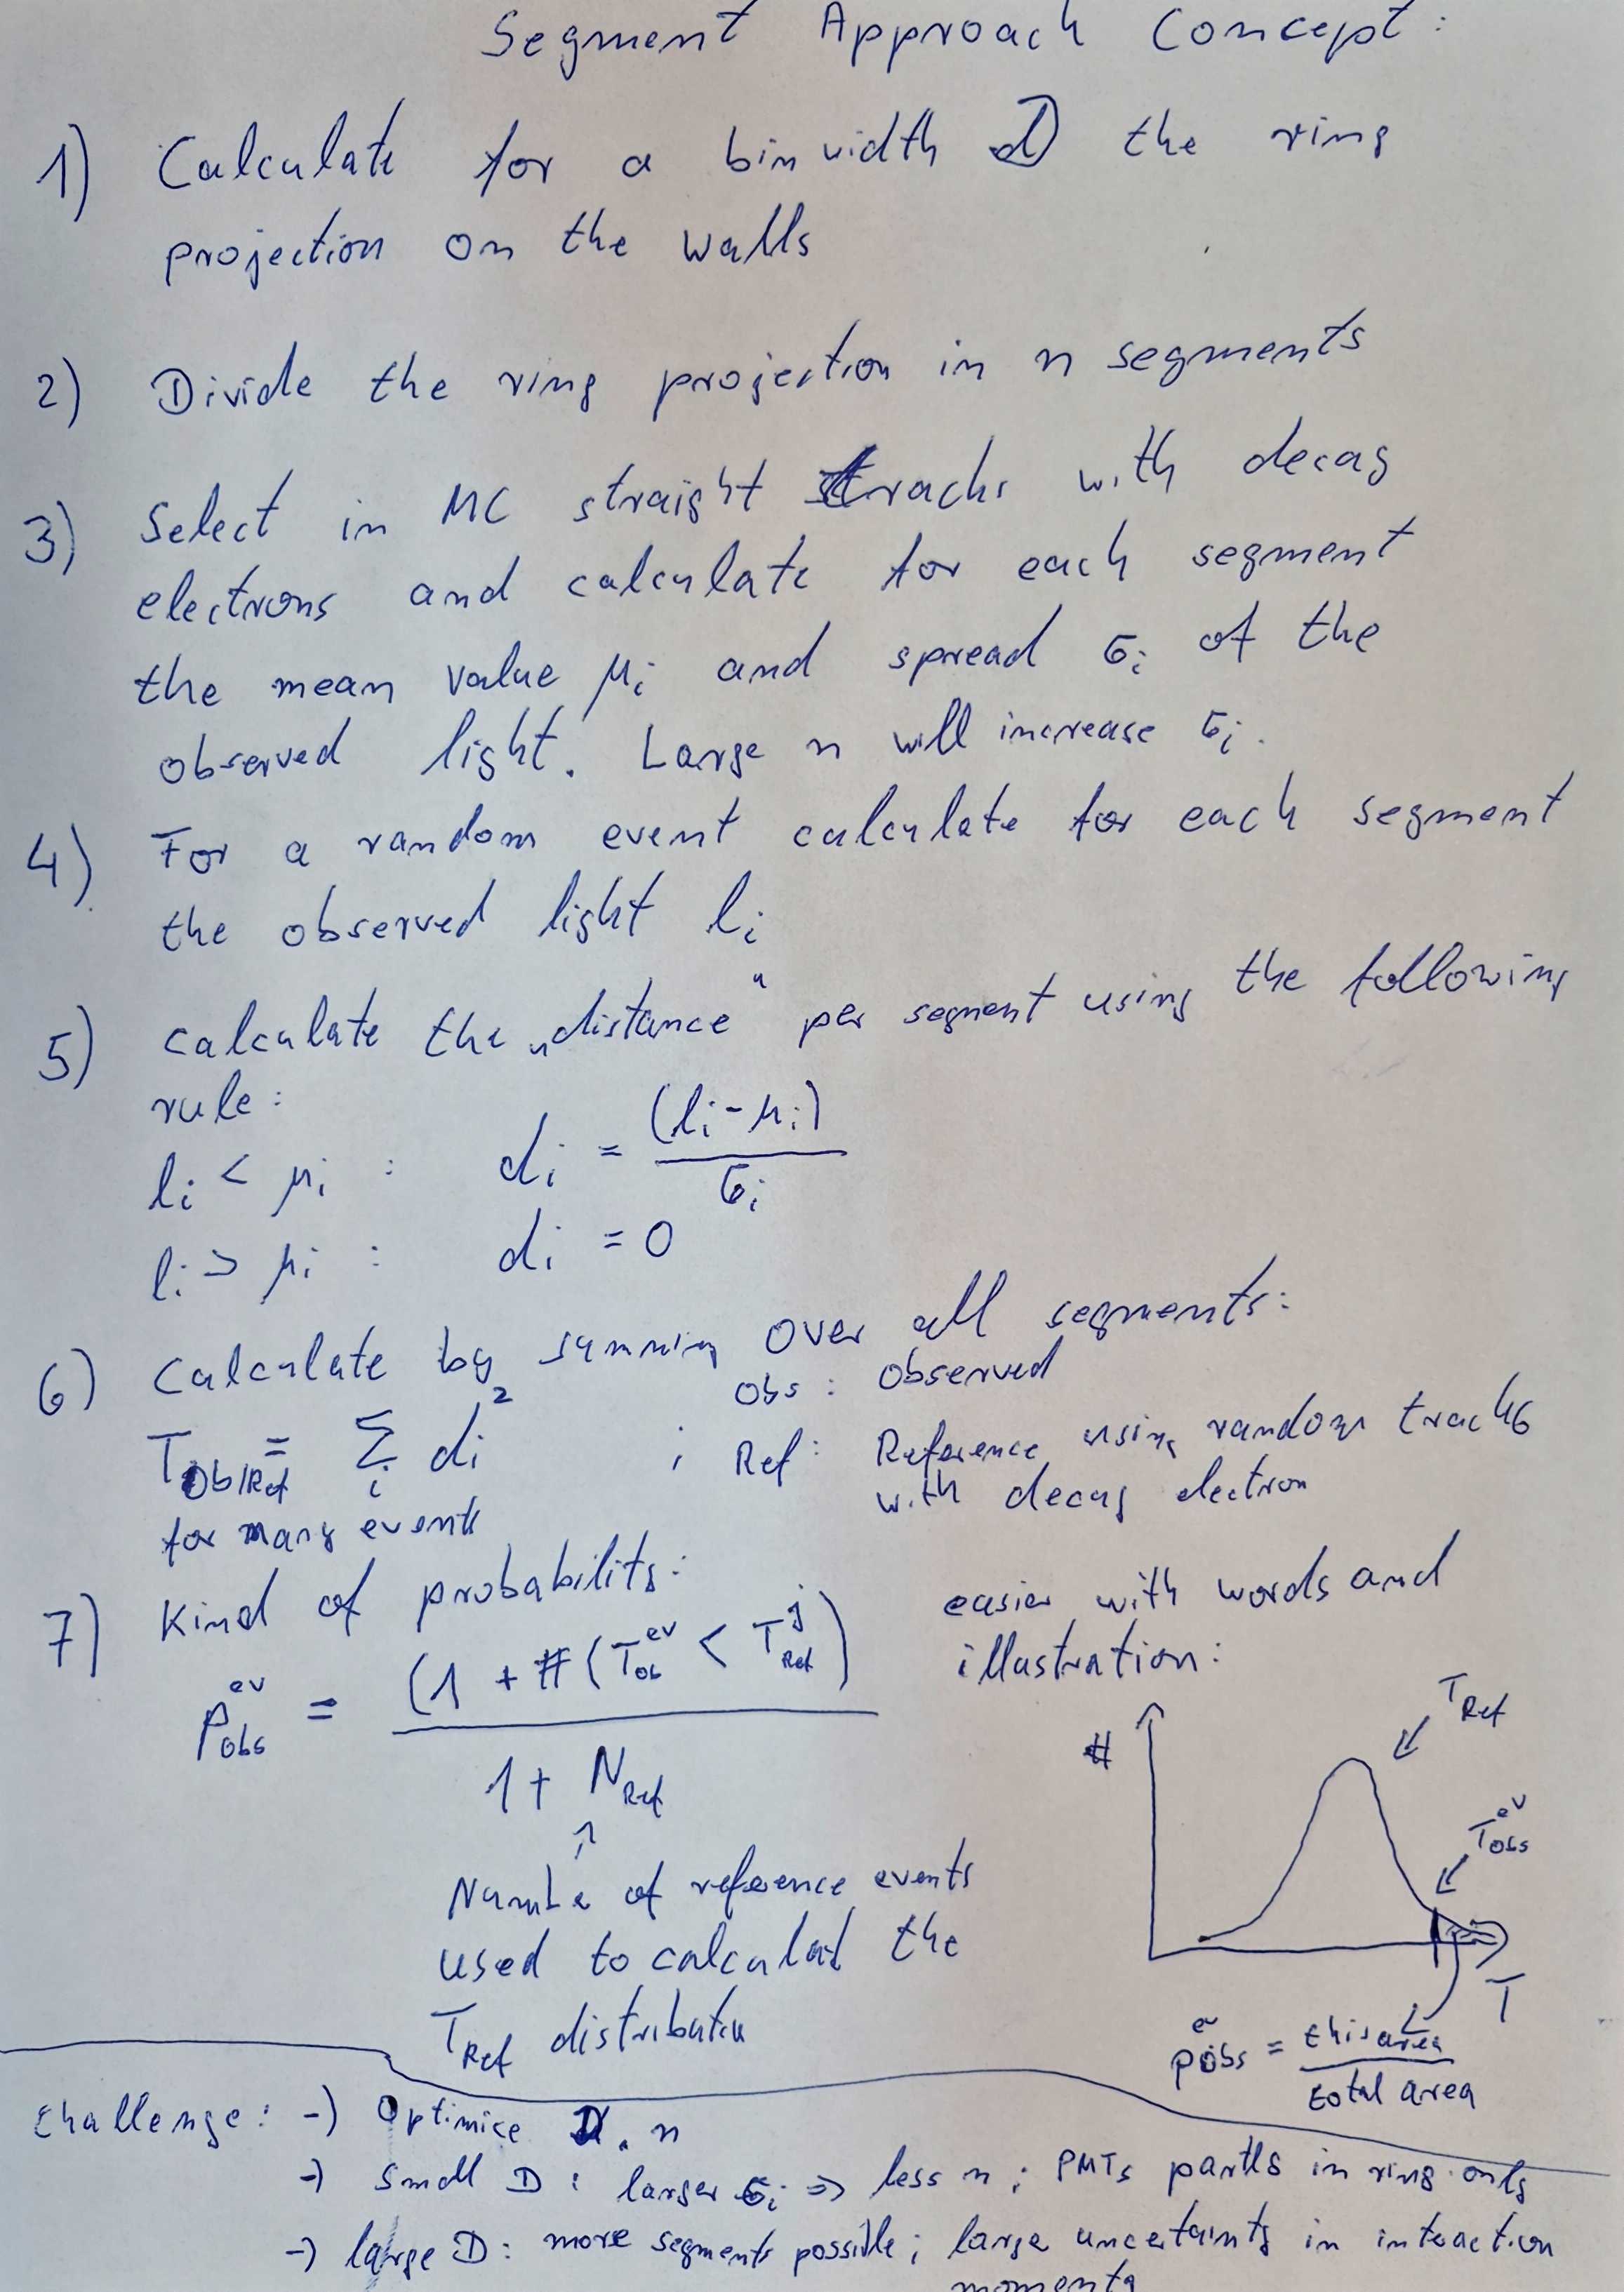 Segment Approach Concept:
1) Calculate for a bin width D the ring
projection on the walls
2) Divide the ring projection in n segments
3) Select in MC straight tracks with decay
electrons and calculate for each segment
the mean value μi and spread σi of the
observed light. Large n will increase σi.
4) For a random event calculate for each segment
the observed light li
5) calculate the „distance“ per segment using the following
rule:
li < μi : di = (li - μi) / σi
li > μi : di = 0
6) Calculate by summing over all segments:
Tob/Ref = Σi di² ; obs : observed
Ref : Reference using random tracks
with decay electron
for many events
7) Kind of probability:
p obs^ev = (1 + #(Tob^ev < TRef^j) / 1 + NRef
↑
Numbe of reference events
used to calculat the
TRef distribution
easier with words and
illustration:
TRef
#
Tobs^ev
T
pobs^ev = this area / total area
Challenge: -) Optimice D, n
-) small D : larger σi => less n ; PMTs partly in ring only
-) large D : more segments possible ; large uncertainty in interaction
momenta